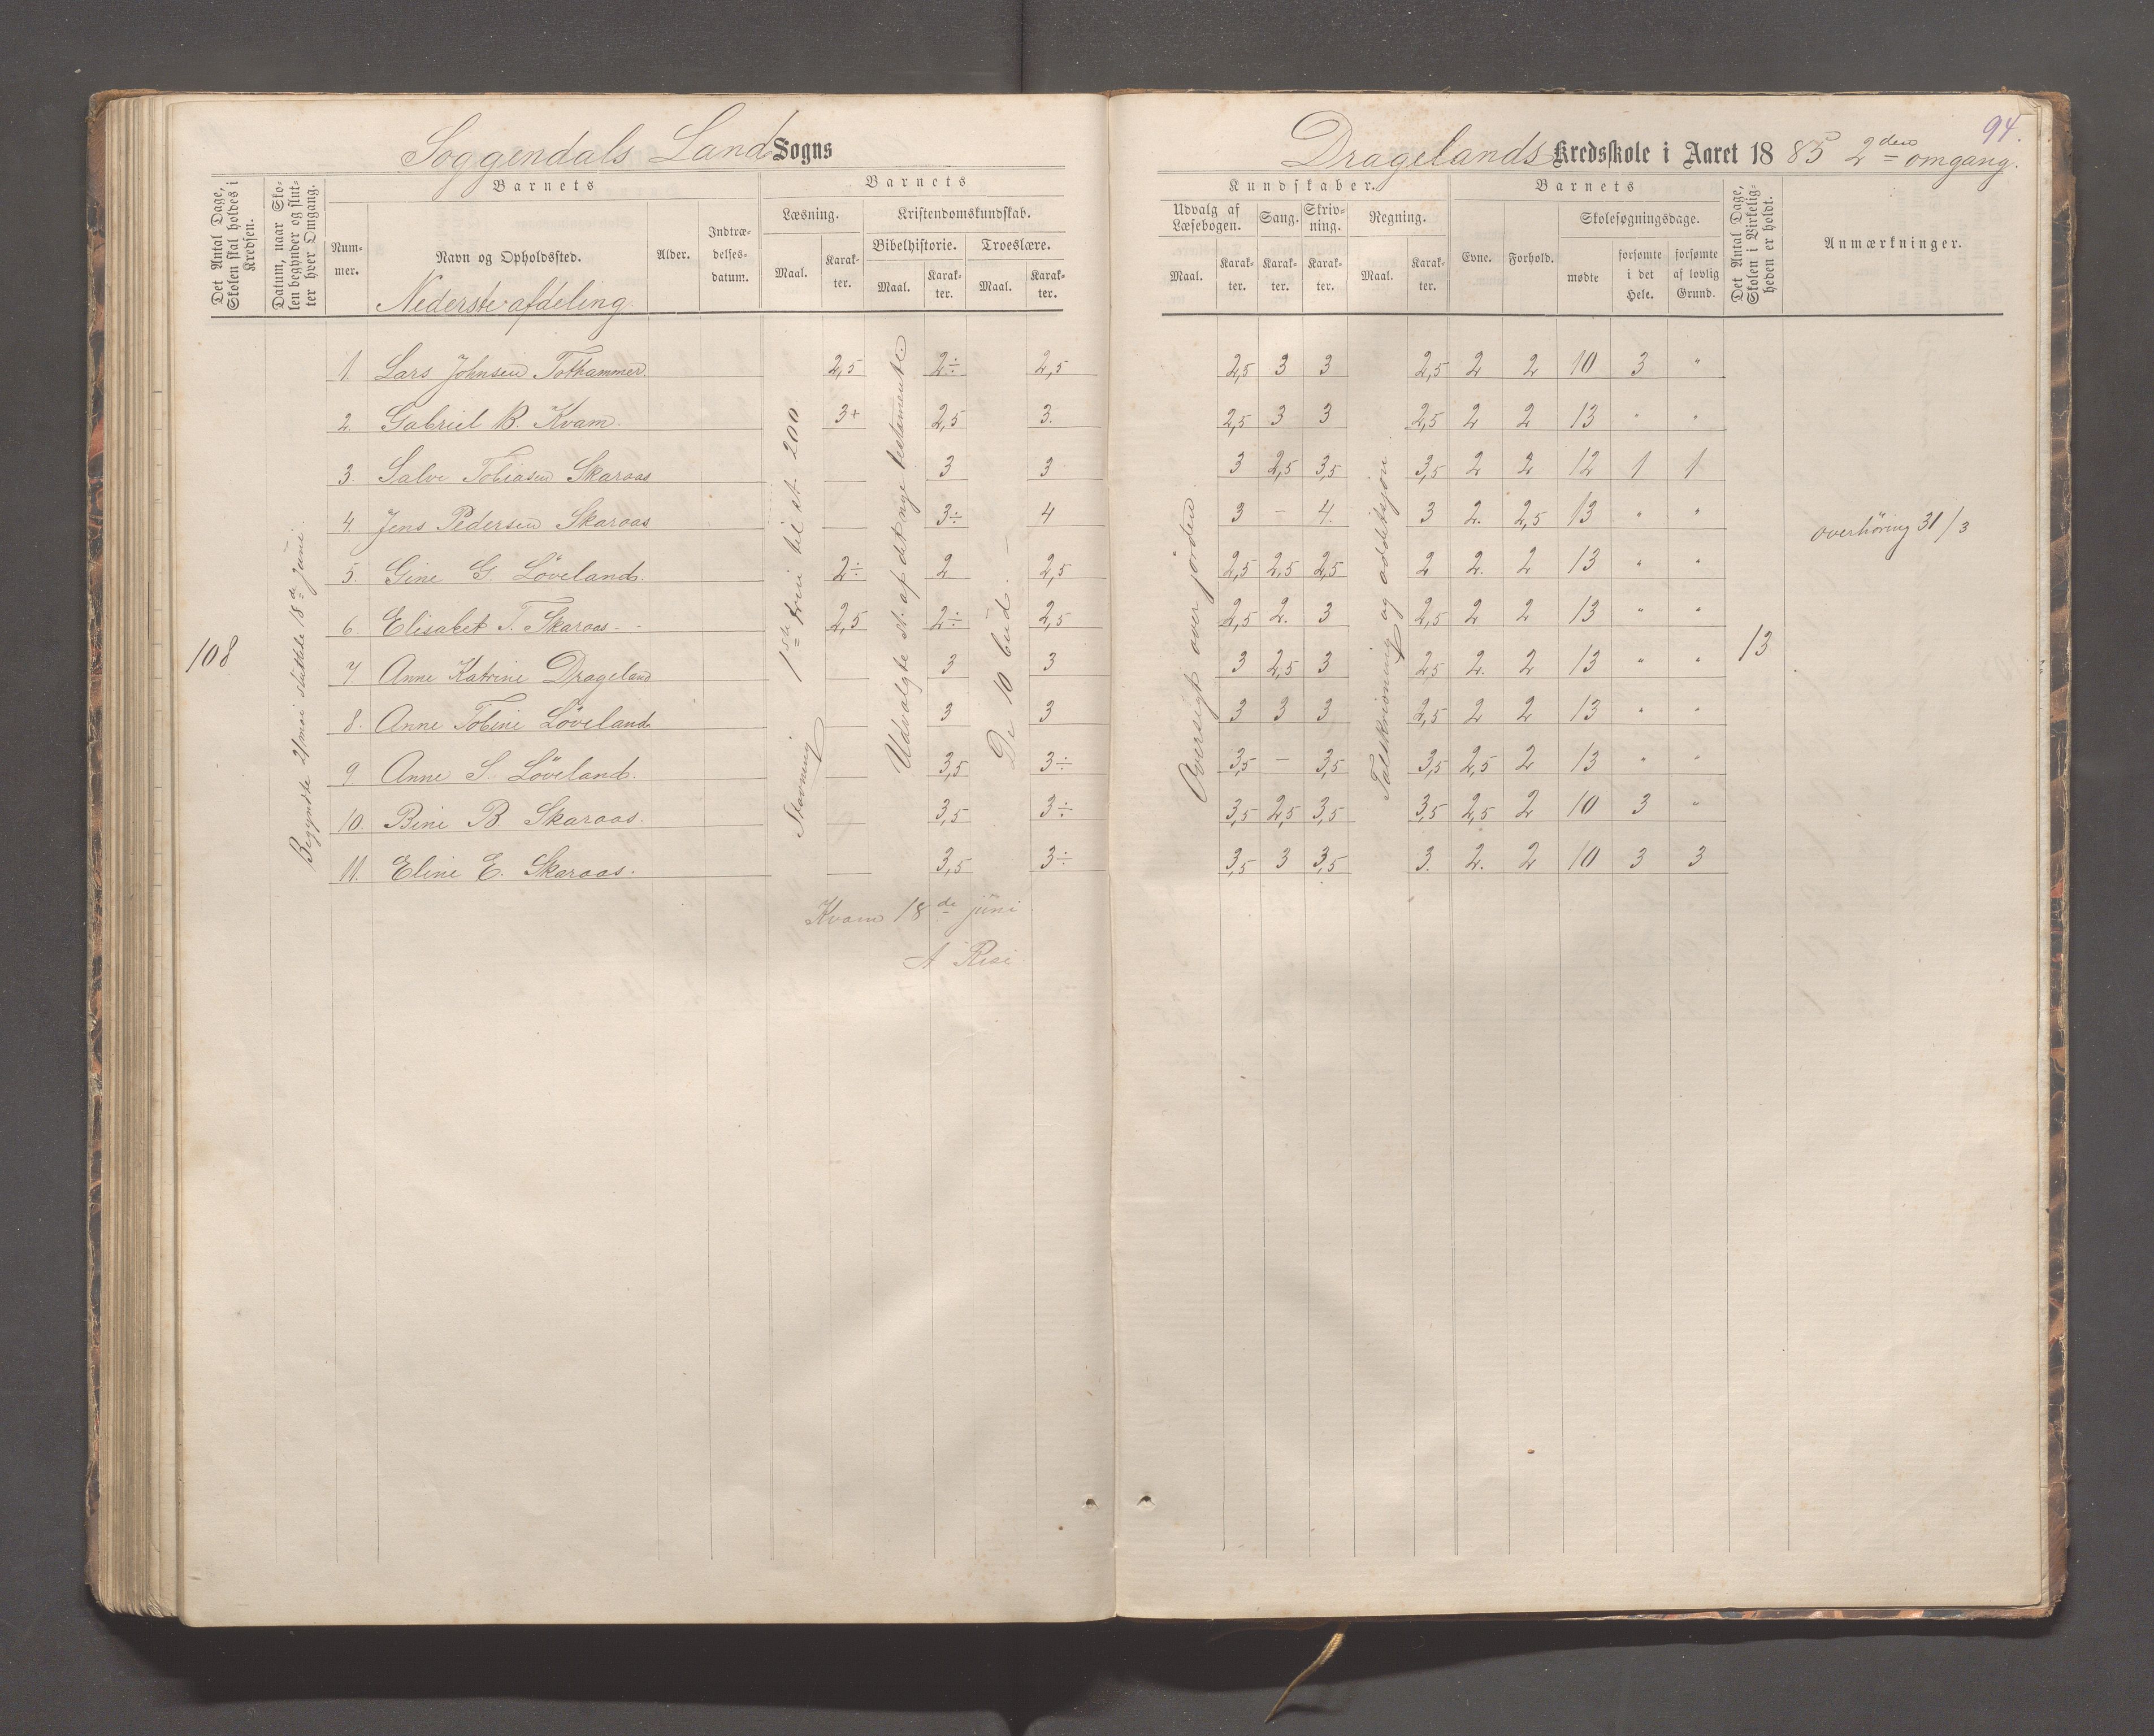 Soggendals Land Sogns
Det Antal Dage, Skolen skal holdes i Kredsen.
Datum, naar Skolen begynder og slutter hver Omgang.
Barnets
Nummer.
Navn og Opholdssted.
Alder.
Indtrædelsesdatum.
Barnets
Læsning.
Maal.
Karakter.
Kristendomskundskab.
Bibelhistorie.
Troeslære.
Maal.
Karakter.
Maal.
Karakter.
Nederste afdeling.
108
Begyndte 21 mai sluttede 18de juni.
Stavning 1ste trin til st. 200
Udvalgte st. af det nye testamente.
De 10 bud.
1. Lars Johnsen Tothammer. 2,5 2÷ 2,5
2. Gabriel B. Kvam. 3+ 2,5 3.
3. Salve Tobiasen Skaraas 3 3
4. Jens Pedersen Skaraas 3÷ 4
5. Gine G. Löveland. 2÷ 2 2,5
6. Elisabet T. Skaraas 2,5 2÷ 2,5
7 Anne Katrine Drageland 3 3
8. Anne Tobine Löveland 3 3
9 Anne S. Löveland. 3,5 3÷
10. Bine B Skaraas. 3,5 3÷
11. Eline E. Skaraas. 3,5 3÷
Kvam 18de juni
94.
Dragelands Kredsskole i Aaret 1885 2den omgang.
Kundskaber.
Udvalg af Læsebogen.
Maal.
Karakter.
Sang.
Karakter.
Skrivning.
Karakter.
Regning.
Maal.
Karakter.
Barnets
Evne.
Forhold.
Skolesøgningsdage.
mødte
forsømte i det Hele.
forsømte af lovlig Grund.
Det Antal Dage, Skolen i Virkeligheden er holdt.
Anmærkninger.
Oversigt over jorden
Talskrivning og addition
2,5 3 3 2,5 2 2 10 3 "
2,5 3 3 2,5 2 2 13 " "
3 2,5 3,5 3,5 2 2 12 1 1
3 – 4. 3 2. 2,5 13 " "
2,5 2,5 2,5 2 2. 2 13 " "
2,5 2. 3 2,5 2 2 13 " "
3 2,5 3 2,5 2. 2 13 " "
3 3 3 2,5 2 2 13 " "
3,5 – 3,5 3,5 2,5 2 13 " "
3,5 2,5 3,5 3,5 2,5 2 10 3 "
3,5 3 3,5 3. 2. 2 10 3 3
13
overhöring 31/3